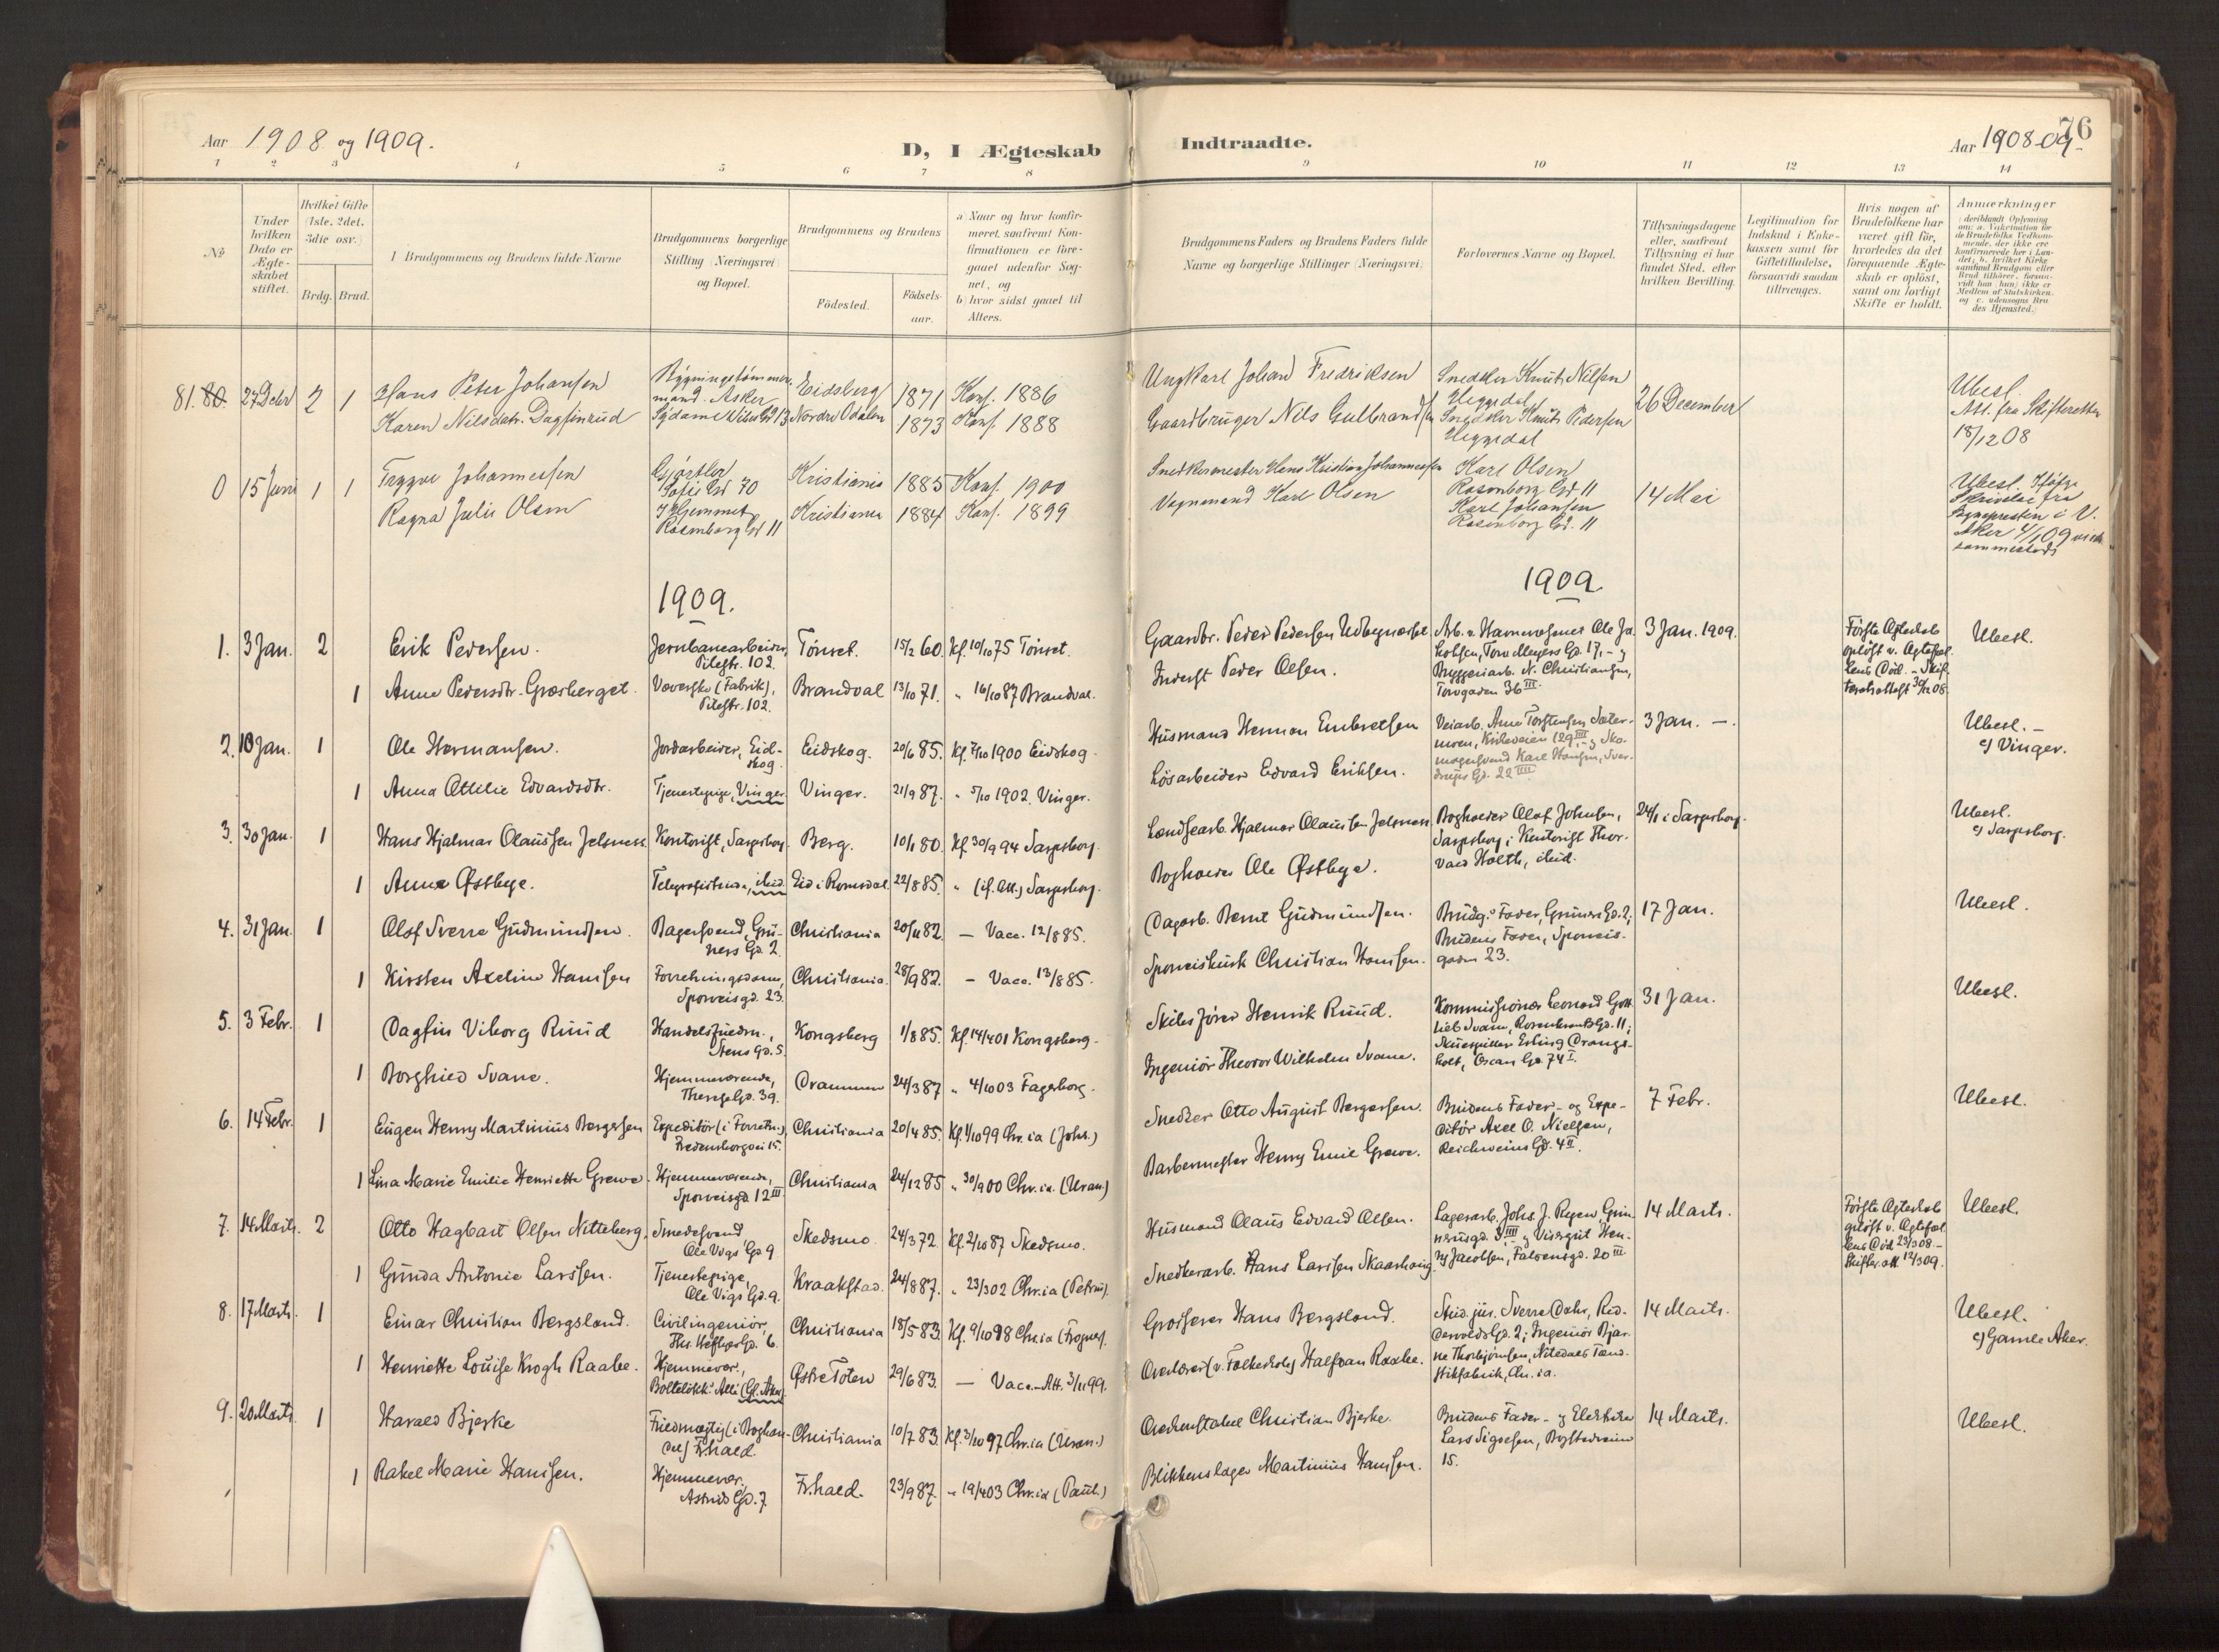 Aar 1908 og 1909.
D, I Ægteskab
Indtraadte.
Aar 1908-09.
76
1 2 3 4 5 6 7 8
9 10 11 12 13 14
No
Under hvilken Dato er Ægteskabet stiftet.
Hvilket Gifte (1ste, 2det, 3die osv.)
Brdg. Brud.
Brudgommens og Brudens fulde Navne
Brudgommens borgerlige Stilling (Næringsvei) og Bopæl.
Brudgommens og Brudens
Födested.
Födselsaar.
a) Naar og hvor konfirmeret, saafremt Konfirmationen er foregaaet udenfor Sognet, og
b) hvor sidst gaaet til Alters.
Brudgommens Faders og Brudens Faders fulde Navne og borgerlige Stillinger (Næringsvei)
Forlovernes Navne og Bopæl.
Tillysningsdagene eller, saafremt Tillysning ei har fundet Sted, efter hvilken Bevilling.
Legitimation for Indskud i Enkekassen samt for Giftetilladelse, forsaavidt saadan tiltrænges.
Hvis nogen af Brudefolkene har været gift för, hvorledes da det foregaaende Ægteskab er oplöst, samt om lovligt Skifte er holdt.
Anmærkninger
81. 80. 27 Debr 2 1 Hans Peter Johansen
Asker Eidsberg 1871 Konf. 1886
Ungkarl Johan Fredriksen
Snedker Knut Nilsen
Heggedal
26 December
Ubesl.
Att. fra Skifteretten
18/12 08
Karen Nilsdatr. Dagfinrud
Nordre Odalen 1873 Konf. 1888
Gaardbruger Nils Gulbrandsen
Snedker Knut Pedersen
Heggedal
0 15 Juni 1 1 Trygve Johannessen
Gjørtler
Sofies Gd 70 Kristiania 1885 Konf. 1900
Snedkermester Hans Kristian Johannessen
Karl Olsen
Rosenborg Gd. 11
14 Mai
Ubesl.
Ragna Julie Olsen
I Hjemmet
Rosenborg Gd 11 Kristiania 1884 Konf. 1899
Vognmand Karl Olsen
Karl Johansen
Rosenborg Gd. 11
Aker 4/1 09
sammesteds
1909.
1909
1. 3 Jan. 2 Erik Pedersen.
Jernbanearbeider,
Pilestr. 102. Tönset. 15/2 60. Kf. 10/10 75 Tönset.
Gaardbr. Peder Pedersen
Ole Jakobsen, Torv Meyers Gd. 17, - og
Bryggeriarb. N. Christiansen,
Torvgaden 36 III.
3 Jan. 1909.
Förste Ægteskab
oplöst v. Ægtefællens Död. - Skifteretsattest 30/12 08.
Ubesl.
1 Anne Pedersdtr. Græsberget.
Væverske (Fabrik),
Pilestr. 102. Brandval 13/10 71. " 16/10 87 Brandval.
Inderst Peder Olsen.
2. 10 Jan. 1 Ole Hermansen.
Jordarbeider, Eidskog. Eidskog. 20/6 85. Kf. 7/10 1900 Eidskog.
Husmand Herman Embretsen
Veiarb. Arne Torstensen Sætermoen, Kirkeveien 129 III - og Skomagersvend Karl Hansen, Sverdrups Gd. 22 IIII
3 Jan. -.
Ubesl. -
c) Vinger.
1 Anna Ottilie Edvardsdtr.
Tjenestepige, Vinger Vinger. 21/9 87. " 5/10 1902 Vinger.
Lösarbeider Edvard Eriksen.
3. 30 Jan. 1 Hans Hjalmar Olaussen Jelsness
Kontorist, Sarpsborg Berg. 10/1 80. Kf. 30/9 94 Sarpsborg.
Landsearb. Hjalmar Olaussen Jelsness
Bogholder Olaf Johnsen,
Sarpsborg; Kontorist Thorvald Holth, ibid.
24/1 i Sarpsborg.
Ubesl.
c) Sarpsborg.
1 Anna Østbye.
Telegrafistinde, ibid. Eid i Romsdal. 22/8 85. " (if. Att.) Sarpsborg.
Bogholder Ole Østbye.
4. 31 Jan. 1 Olaf Sverre Gudmundsen.
Bagersvend, Grüners Gd. 2. Christiania 20/11 82. - Vacc. 12/8 85.
Dagarb. Bernt Gudmundsen.
Brudg.s Fader, Grüners Gd. 2;
Brudens Fader, Sporveisgaden 23.
17 Jan.
Ubesl.
1 Kirsten Axeline Hansen
Forretningsdame,
Sporveisgd. 23. Christiania. 28/9 82. - Vacc. 13/8 85.
Sporveiskusk Christian Hansen.
5. 3 Febr. 1 Dagfin Viborg Ruud
Handelsfuldm.,
Stens Gd. 5. Kongsberg 1/8 85. Kf. 14/4 01 Kongsberg.
Henrik Ruud.
Kommissionær Leonard Gottlieb Svane, Rosenkrantz Gd. 11;
Skuespiller Erling Drangsholt, Oscars Gd. 74 I.
31 Jan.
Ubesl.
1 Borghild Svane.
Hjemmeværende,
Therese Gd. 39. Drammen 24/3 87 " 4/10 03 Fagerborg.
Ingeniör Theodor Wilhelm Svane.
6. 14 Febr. 1 Eugen Henry Martinius Bergersen
Expeditör (i Forretn.),
Fredensborgvei 15. Christiania 20/4 85. Kf. 1/10 99 Chr.ia (Johs.)
Snedker Otto August Bergersen.
Brudens Fader - og Expeditör Axel O. Nielsen,
Reichweins Gd. 4 II.
7 Febr.
Ubesl.
1 Lina Marie Emilie Henriette Grewe.
Hjemmeværende,
Sporveisgd. 12 III. Christiania 24/12 85 " 30/9 00 Chr.ia. (Uran.)
Barbermester Henry Emil Grewe.
7. 14 Marts. 2 Otto Hagbart Olsen Nitteberg.
Smedesvend
Ole Vigs Gd. 9 Skedsmo. 24/3 72. Kf. 2/10 87 Skedsmo.
Husmand Olaus Edvard Olsen.
Lagerarb. Johs. J. Ryen, Grünersgd. 3 IIII - og Visergut Henry Jacobsen, Falsensgd. 20 III
14 Marts.
Förste Ægteskab
oplöst v. Ægtefællens Död 23/3 08. -
Skifter.att 12/3 09.
Ubesl.
1 Gunda Antonie Larssen.
Tjenestepige,
Ole Vigs Gd. 9. Kraakstad. 24/8 87. " 23/3 02 Chr.ia (Petrus).
Snedkerarb. Hans Larssen Skaarhaug.
8. 17 Marts. 1 Einar Christian Bergsland.
Civilingeniör,
Ths. Heftyes Gd. 6. Christiania 18/5 83. Kf. 9/10 98 Chr.ia (Frogner).
Grosserer Hans Bergsland.
Stud. jur. Sverre Dahr, Riddervolds Gd. 2; Ingeniör Bjarne Thorbjörnsen, Nitedals Tændstikfabrik, Chr.ia.
14 Marts.
Ubesl.
c) Gamle Aker.
1 Henriette Louise Krogh Raabe.
Hjemmevær.,
Bolteløkk.s Allé (Gl. Aker). Østre Toten 29/6 83. - Vacc.-Att. 3/11 99.
Overlærer (v. Folkeskole) Halfdan Raabe.
9. 20 Marts. 1 Harald Bjerke
Fuldmægtig (i Boghandel) Fr.hald. Christiania 10/7 83. Kf. 3/10 97 Chr.ia (Uran.)
Christian Bjerke.
Brudens Fader - og Elektriker Lars Sigvesen, Bogstadveien 15.
14 Marts.
Ubesl.
1 Rakel Marie Hansen.
Hjemmevær.
Astrids Gd. 7. Fr.hald. 23/9 87. " 19/4 03 Chr.ia (Paul.)
Blikkenslager Martinius Hansen.